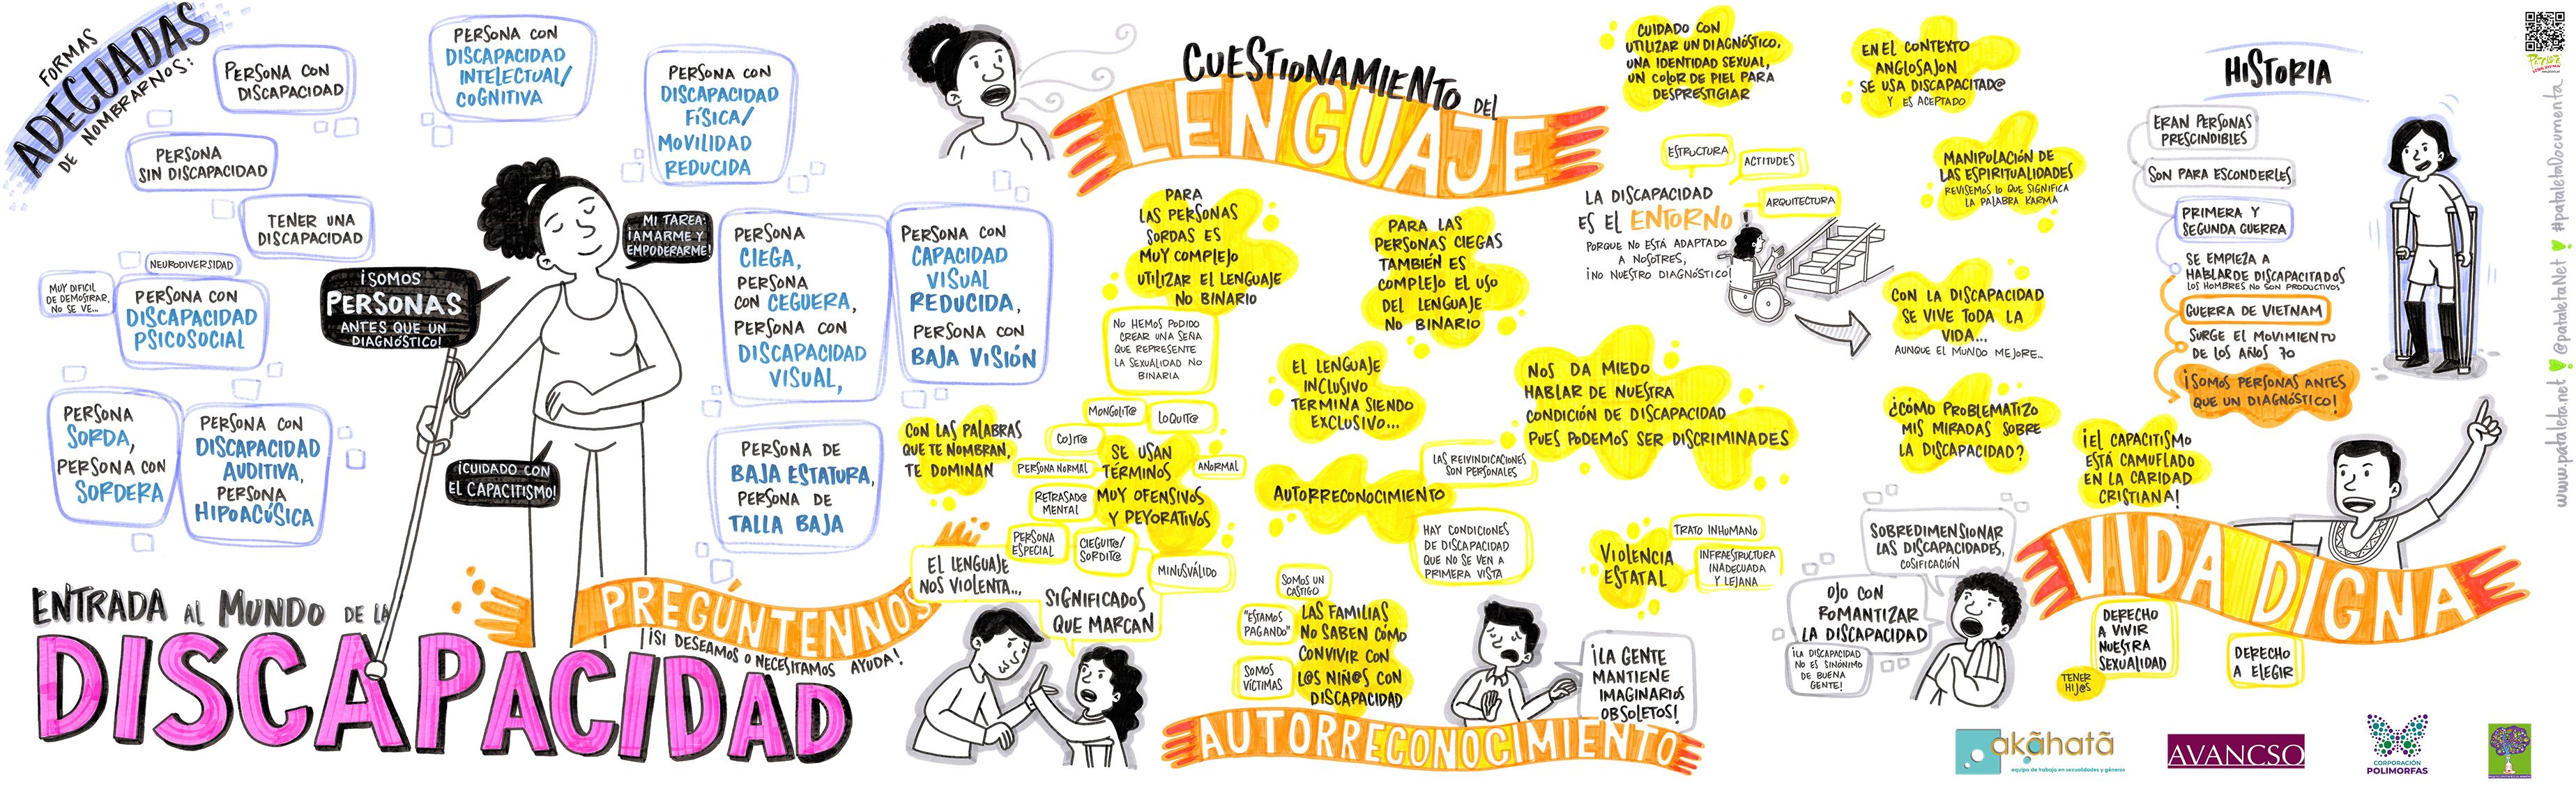 FORMAS
ADECUADAS
DE NOMBRARNOS:
PERSONA CON
DISCAPACIDAD
PERSONA
SIN DISCAPACIDAD
TENER UNA
DISCAPACIDAD
NEURODIVERSIDAD
MUY DIFICIL
DE DEMOSTRAR,
NO SE VE...
PERSONA CON
DISCAPACIDAD
PSICOSOCIAL
PERSONA
SORDA,
PERSONA CON
SORDERA
PERSONA CON
DISCAPACIDAD
AUDITIVA,
PERSONA
HIPOACÚSICA
PERSONA CON
DISCAPACIDAD
INTELECTUAL/
COGNITIVA
PERSONA CON
DISCAPACIDAD
FÍSICA/
MOVILIDAD
REDUCIDA
PERSONA
CIEGA,
PERSONA
CON CEGUERA,
PERSONA CON
DISCAPACIDAD
VISUAL,
PERSONA CON
CAPACIDAD
VISUAL
REDUCIDA,
PERSONA CON
BAJA VISIÓN
PERSONA DE
BAJA ESTATURA,
PERSONA DE
TALLA BAJA
MI TAREA:
¡AMARME Y
EMPODERARME!
¡SOMOS
PERSONAS
ANTES QUE UN
DIAGNÓSTICO!
¡CUIDADO CON
EL CAPACITISMO!
ENTRADA AL MUNDO DE LA
DISCAPACIDAD
PREGÚNTENNOS
¡SI DESEAMOS O NECESITAMOS AYUDA!
CUESTIONAMIENTO DEL
LENGUAJE
PARA
LAS PERSONAS
SORDAS ES
MUY COMPLEJO
UTILIZAR EL LENGUAJE
NO BINARIO
NO HEMOS PODIDO
CREAR UNA SEÑA
QUE REPRESENTE
LA SEXUALIDAD NO
BINARIA
PARA LAS
PERSONAS CIEGAS
TAMBIÉN ES
COMPLEJO EL USO
DEL LENGUAJE
NO BINARIO
EL LENGUAJE
INCLUSIVO
TERMINA SIENDO
EXCLUSIVO...
CON LAS PALABRAS
QUE TE NOMBRAN,
TE DOMINAN
MONGOLIT@
LOQUIT@
COJIT@
PERSONA NORMAL
SE USAN
TÉRMINOS
MUY OFENSIVOS
Y PEYORATIVOS
ANORMAL
RETRASAD@
MENTAL
PERSONA
ESPECIAL
CIEGUIT@/
SORDIT@
MINUSVÁLIDO
EL LENGUAJE
NOS VIOLENTA...
SIGNIFICADOS
QUE MARCAN
CUIDADO CON
UTILIZAR UN DIAGNÓSTICO,
UNA IDENTIDAD SEXUAL,
UN COLOR DE PIEL PARA
DESPRESTIGIAR
EN EL CONTEXTO
ANGLOSAJON
SE USA DISCAPACITAD@
Y ES ACEPTADO
ESTRUCTURA
ACTITUDES
ARQUITECTURA
LA DISCAPACIDAD
ES EL ENTORNO
PORQUE NO ESTÁ ADAPTADO
A NOSOTRES,
¡NO NUESTRO DIAGNÓSTICO!
MANIPULACIÓN DE
LAS ESPIRITUALIDADES
REVISEMOS LO QUE SIGNIFICA
LA PALABRA KARMA
CON LA DISCAPACIDAD
SE VIVE TODA LA
VIDA...
AUNQUE EL MUNDO MEJORE...
NOS DA MIEDO
HABLAR DE NUESTRA
CONDICIÓN DE DISCAPACIDAD
PUES PODEMOS SER DISCRIMINADES
¿CÓMO PROBLEMATIZO
MIS MIRADAS SOBRE
LA DISCAPACIDAD?
AUTORRECONOCIMIENTO
LAS REIVINDICACIONES
SON PERSONALES
HAY CONDICIONES
DE DISCAPACIDAD
QUE NO SE VEN A
PRIMERA VISTA
VIOLENCIA
ESTATAL
TRATO INHUMANO
INFRAESTRUCTURA
INADECUADA
Y LEJANA
SOMOS UN
CASTIGO
"ESTAMOS
PAGANDO"
SOMOS
VÍCTIMAS
LAS FAMILIAS
NO SABEN CÓMO
CONVIVIR CON
L@S NIÑ@S CON
DISCAPACIDAD
¡LA GENTE
MANTIENE
IMAGINARIOS
OBSOLETOS!
AUTORRECONOCIMIENTO
HISTORIA
ERAN PERSONAS
PRESCINDIBLES
SON PARA ESCONDERLES
PRIMERA Y
SEGUNDA GUERRA
SE EMPIEZA A
HABLAR DE DISCAPACITADOS
LOS HOMBRES NO SON PRODUCTIVOS
GUERRA DE VIETNAM
SURGE EL MOVIMIENTO
DE LOS AÑOS 70
¡SOMOS PERSONAS ANTES
QUE UN DIAGNÓSTICO!
¡EL CAPACITISMO
ESTÁ CAMUFLADO
EN LA CARIDAD
CRISTIANA!
SOBREDIMENSIONAR
LAS DISCAPACIDADES,
COSIFICACIÓN
OJO CON
ROMANTIZAR
LA DISCAPACIDAD
¡LA DISCAPACIDAD
NO ES SINÓNIMO
DE BUENA
GENTE!
VIDA DIGNA
DERECHO
A VIVIR
NUESTRA
SEXUALIDAD
TENER
HIJ@S
DERECHO
A ELEGIR
akãhatã
equipo de trabajo en sexualidades y géneros
AVANCSO
CORPORACIÓN
POLIMORFAS
www.pataleta.net @pataletaNet #pataletaDocumenta